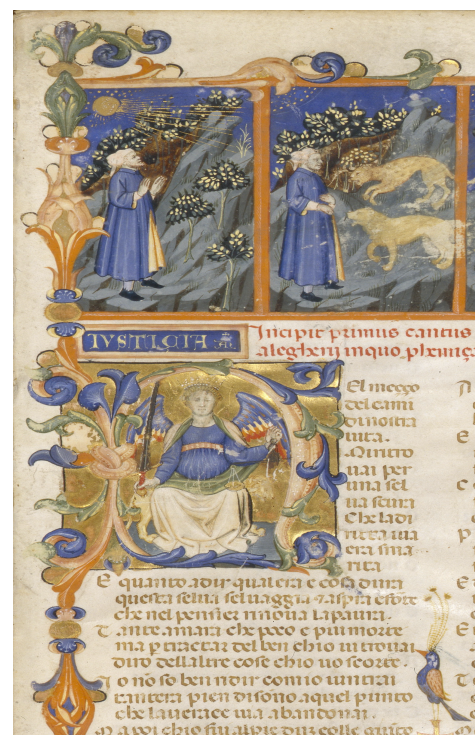 IVSTICIA
Incipit primus cantus
alegherii inquo plxunça
El meçço
del cami
di nostra
uita.
Miritro
uai per
una sel
ua scura
Che la di
ritta uia
era sma
rita
E quanto adir qual era e cosa dura
questa selua seluaggia & aspra e forte
che nel pensier rinoua la paura.
T ante amara che poco e piu morte
ma p tractar del ben chio ui trouai
diro dellaltre cose chio uo scorte.
I o no so ben ridir comio uintrai
tantera pien di sono aquel punto
che la uerace uia abandonai.
M a poi chio fui alpie dun colle giunto